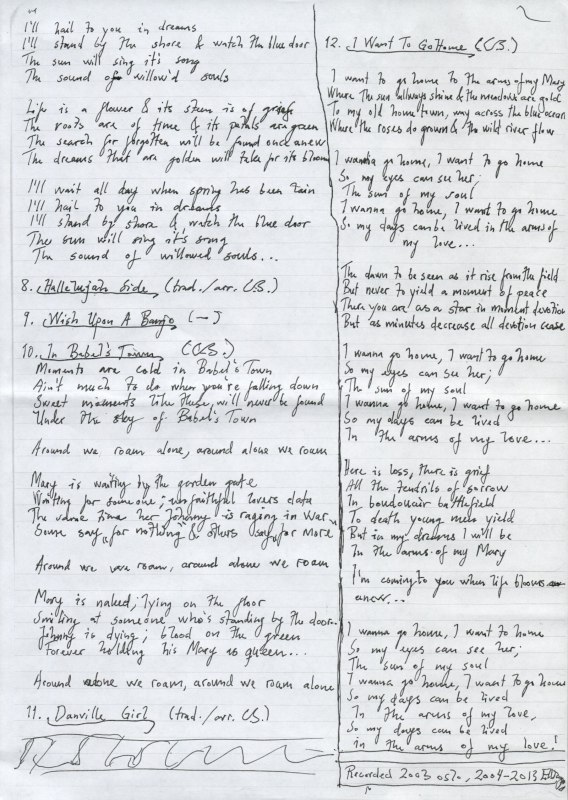 I'll hail to you in dreams
I'll stand by the shore & watch the blue door
The sun will sing it's song
The sound of willow'd souls
Life is a flower & its stem is of grief
The roots are of time & its petals are green
The search for forgotten will be found once anew
The dreams that are golden will take for its bloom
I'll wait all day when spring has been tain
I'll hail to you in dreams
I'll stand by shore & watch the blue door
The sun will sing it's song
The sound of willowed souls...
8. Hallelujah Side (trad./arr. C.B.)
9. Wish Upon A Banjo (—)
10. In Babel's Town (C.B.)
Moments are cold in Babel's Town
Ain't much to do when you're falling down
Sweet moments like these, will never be found
Under the sky of Babel's Town
Around we roam alone, around alone we roam
Mary is waiting by the garden gate
Waiting for someone; unfaithful lovers date
The same time her Johnny is raging in war
Some say "for nothing" & others say "for more"
Around we roam, around alone we roam
Mary is naked, lying on the floor
Smiling at someone who's standing by the door
Johnny is dying; blood on the green
Forever holding his Mary as queen...
Around alone we roam, around we roam alone
11. Danville Girl (trad./arr. C.B.)
2
12. I Want To Go Home (C.B.)
I want to go home to the arms of my Mary
Where the sun allways shine & the meadows are gold
To my old home town, way across the blue ocean
Where the roses do grown & the wild river flow
I wanna go home, I want to go home
So my eyes can see her;
The sun of my soul
I wanna go home, I want to go home
So my days can be lived in the arms of
my love...
The dawn to be seen as it rise from the field
But never to yield a moment of peace
There you are, as a star in moment devotion
But as minutes decrease all devotion cease
I wanna go home, I want to go home
So my eyes can see her;
The sun of my soul
I wanna go home, I want to go home
So my days can be lived
In the arms of my love...
Here is loss, there is grief
All the tendrils of sorrow
In boudowair battlefield
To death young men yield
But in my dreams I will be
In the arms of my Mary
I'm coming to you when life blooms
anew...
I wanna go home, I want to go home
So my eyes can see her;
The sun of my soul
I wanna go home, I want to go home
So my days can be lived
In the arms of my love,
So my days can be lived
in the arms of my love!
Recorded 2003 Oslo, 2004-2013